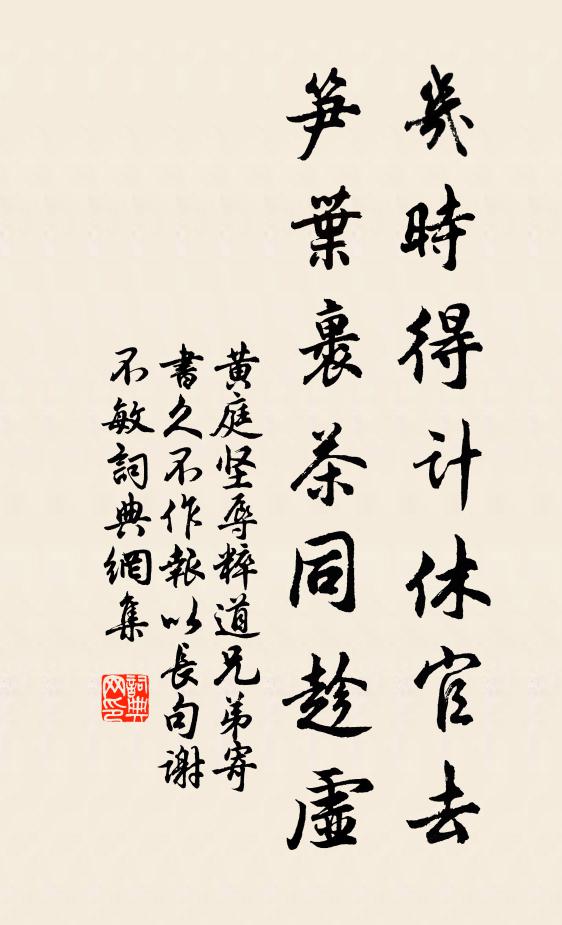 幾時得计休官去
笋葉裹茶同趁虛
黄庭坚辱粹道兄弟寄
書久不作報以長句谢
不敏詞典網集
詞典
网印